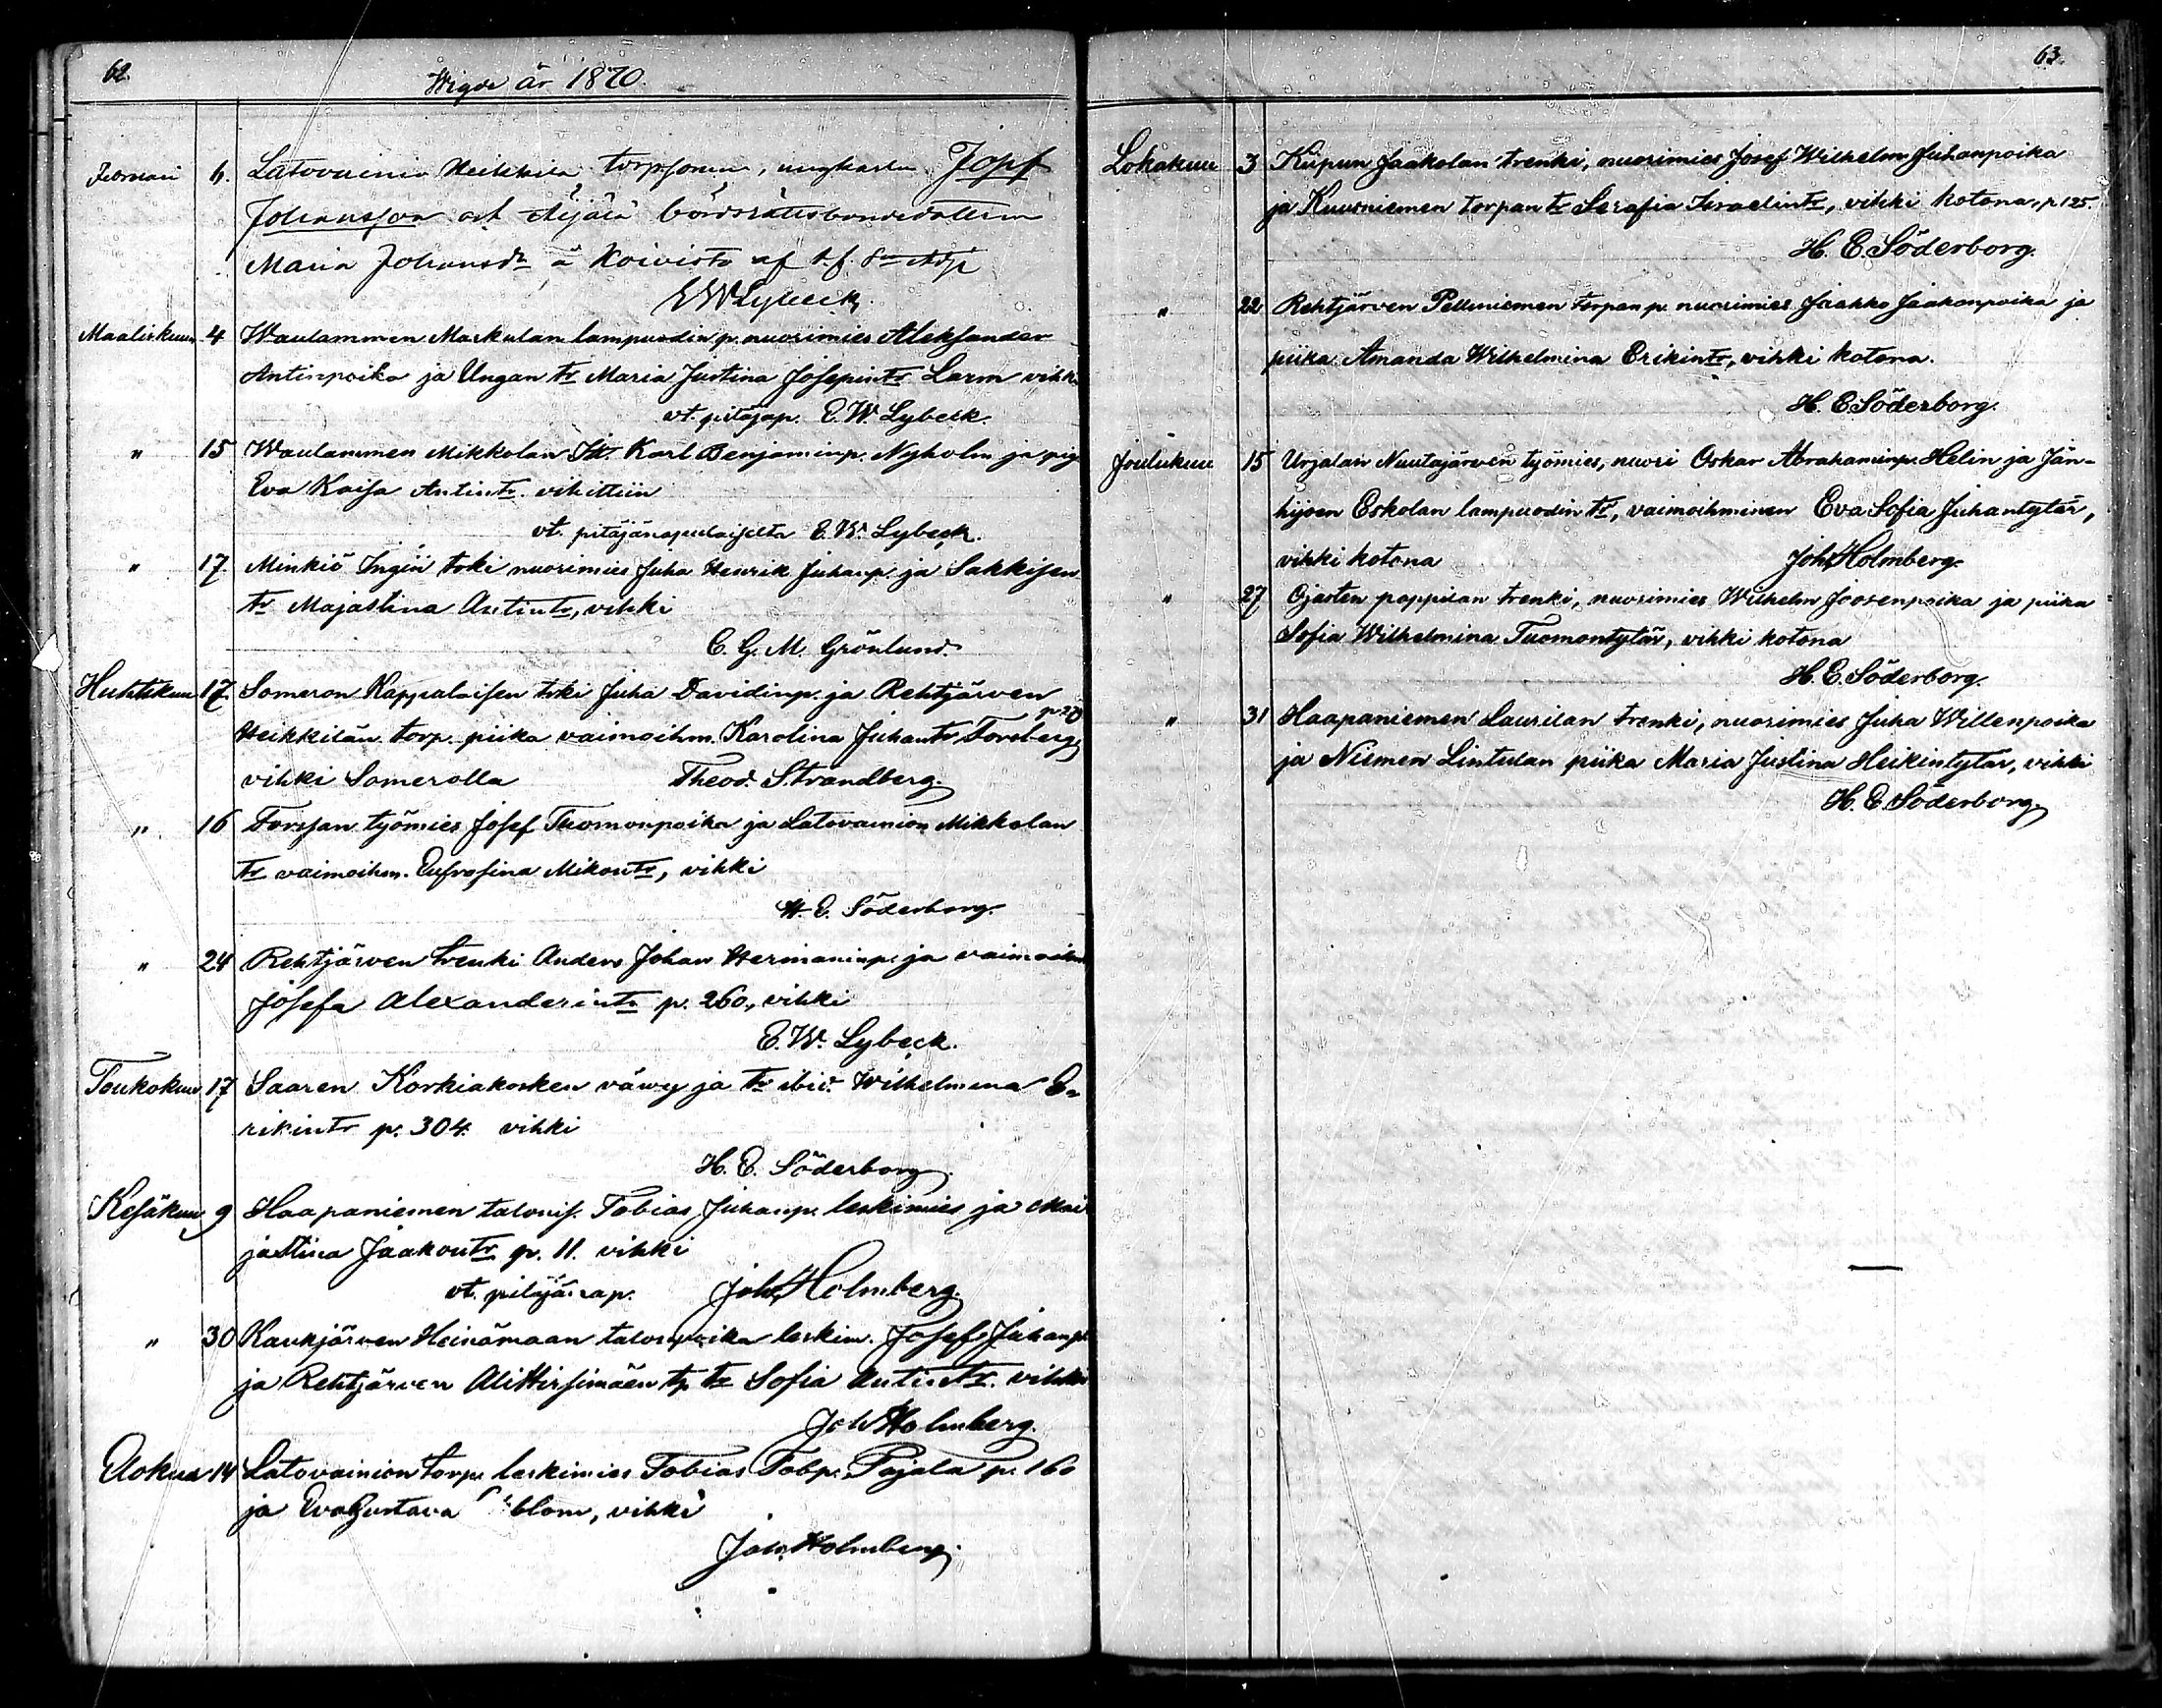 62.
Wigde år 1870.
Februari 6. Latovainio Heikkilä torpsonen, ungkarlen Josef
Johansson och Äijälä bördsrättsbondedottern
Maria Johansdr å Koivisto af t.f. Sn Adj.
E W Lybeck
Maaliskuu 4 Waulammen Markulan lampuodin p. nuorimies Aleksander
Antinpoika ja Ungan tr Maria Justina Josepintr Larm vihk.
vt. pitäjäp. E. W. Lybeck.
" 15 Waulammen Mikkolan Karl Benjaminp. Nyholm ja
Eva Kaisa Antintr. vihittiin
vt. pitäjänapulaiselta E. W. Lybeck.
" 17. Minkiö Ingin toki nuorimies Juha Henrik Juhanp. ja Sukkisen
tr Majastina Antintr, vihki
C. G. M. Grönlund.
Huhtikuu 17. Someron Kappalaisen trki Juha Davidinp. ja Rehtjärven
Heikkilän torp. piika vaimoihm. Karolina Juhantr Forsberg
vihki Somerolla Theod. Strandberg.
" 16 Forssan työmies Josef Tuomonpoika ja Latovainion Mikkolan
tr vaimoihm. Eufrosina Mikontr, vihki
H. E. Söderborg.
" 24 Rehtjärven trenki Anders Johan Hermaninp. ja vaimoihm
Josefa Alexanderintr p. 260, vihki
E. W. Lybeck.
Toukokuu 17 Saaren Korkiakosken vävy ja tr ibid. Wilhelmina E-
rikintr p. 304. vihki
H. E. Söderborg.
Kesäkuu 9 Haapaniemen talonis. Tobias Juhanp. leskimies ja Mai
jastina Jaakontr p. 11. vihki
vt. pitäjänap. Joh. Holmberg.
" 30 Kaukjärven Heinämaan talonpoika leskim. Josef Juhanp.
ja Rehtjärven AliHirsimäen tp. tr Sofia Antintr. vihki
Joh Holmberg.
Elokuu 14 Latovainion torp. leskimies Tobias Tobp. Pajala p. 160
ja Eva Gustava blom, vihki
Joh. Holmberg.
63.
Lokakuu 3 Kiipun Jaakolan trenki, nuorimies Josef Wilhelm Juhanpoika
ja Kuusniemen torpan tr Serafia Israelintr, vihki kotona, p 125.
H. E. Söderborg.
" 22 Rehtjärven Pelliniemen torpan p. nuorimies Jaakko Jaakonpoika ja
piika Amanda Wilhelmina Erikintr, vihki kotona.
H. E Söderborg.
Joulukuu 15 Urjalan Nuutajärven työmies, nuori Oskar Abrahaminp. Helin ja Jän-
hijoen Eskolan lampuodin tr, vaimoihminen Eva Sofia Juhantytär,
vihki kotona Joh. Holmberg.
" 27 Ojasten pappilan trenki, nuorimies Wilhelm Joosenpoika ja piika
Sofia Wilhelmina Tuomontytär, vihki kotona
H. E. Söderborg.
" 31 Haapaniemen Laurilan trenki, nuorimies Juha Willenpoika
ja Niemen Lintulan piika Maria Justina Heikintytär, vihki
H. E Söderborg.